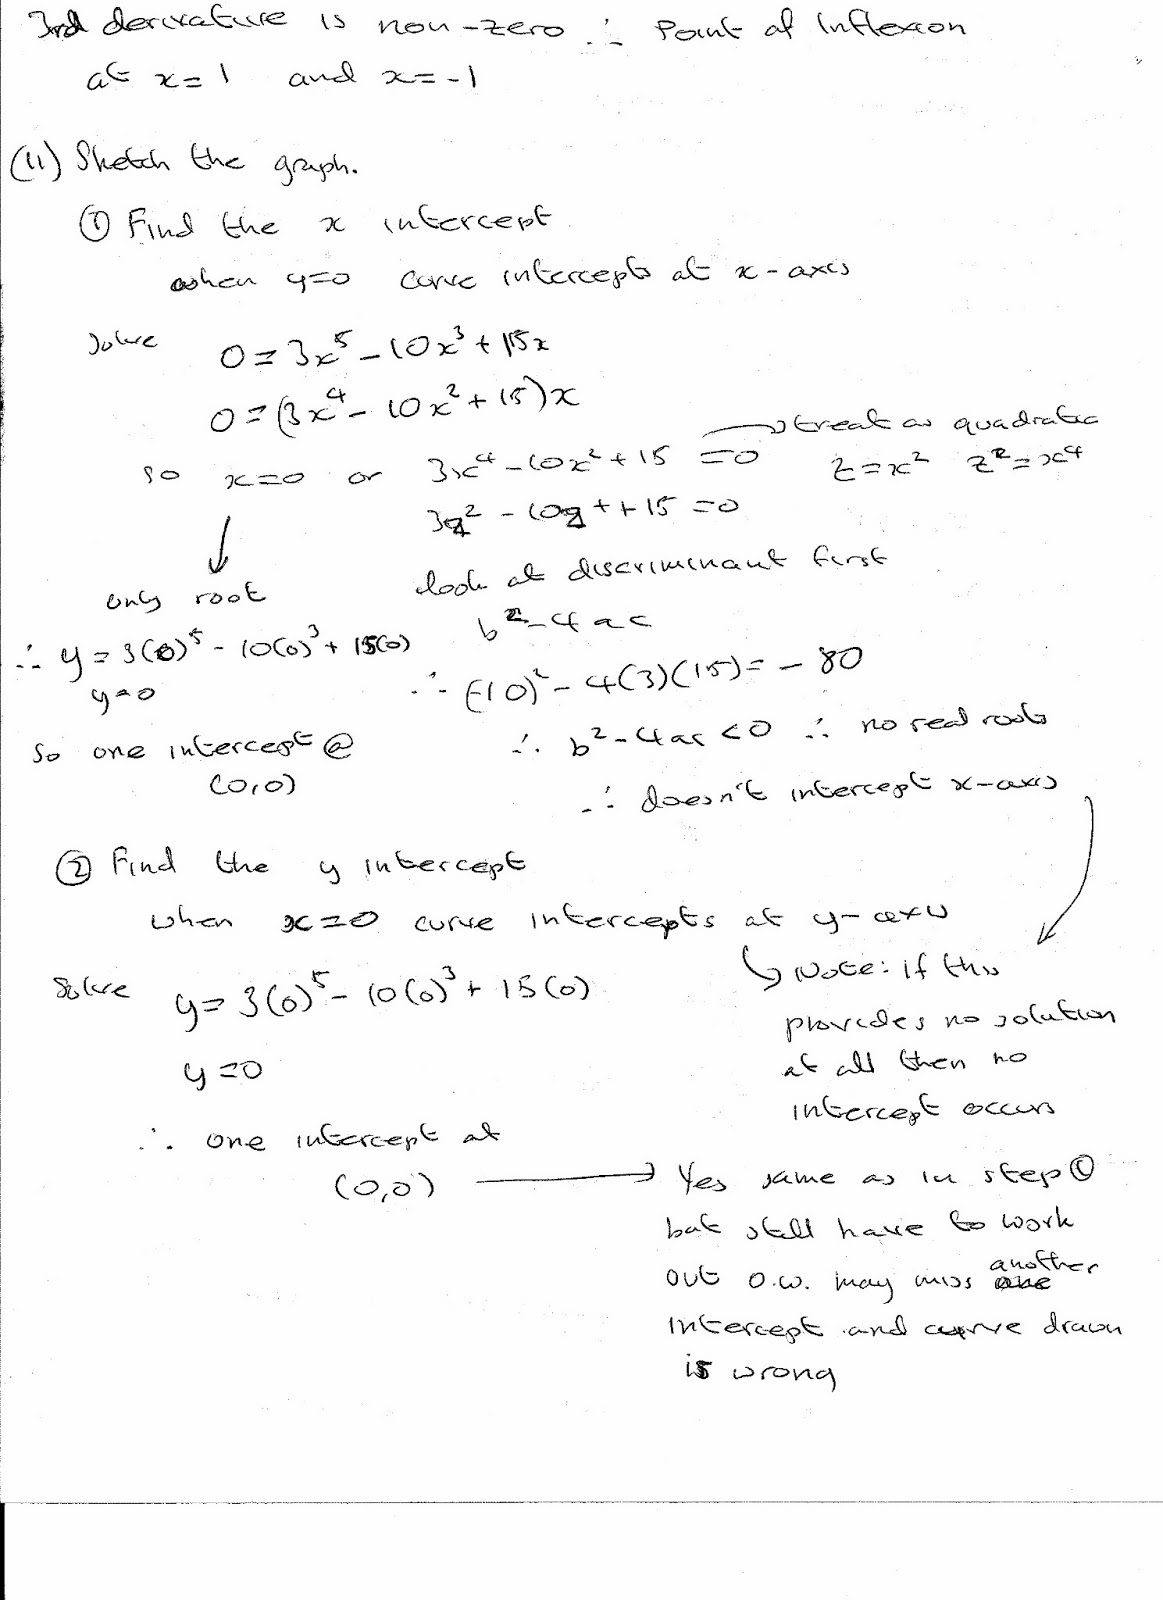 3rd derivature is non-zero ∴ Point of Inflexion
at x=1 and x=-1
(ii) Sketch the graph.
① Find the x intercept
when y=0 curve intercepts at x-axis
Solve 0=3x⁵-10x³+15x
0=(3x⁴-10x²+15)x
treat as quadratic
so x=0 or 3x⁴-10x²+15=0 z=x² z²=x⁴
3z²-10z++15=0
look at discriminant first
only root
b²-4ac
∴ y=3(0)⁵-10(0)³+15(0)
y=0
∴ (-10)²-4(3)(15)=-80
So one intercept @
(0,0)
∴ b²-4ac<0 ∴ no real roots
∴ doesn't intercept x-axis
② Find the y intercept
when x=0 curve intercepts at y-axis
Note: if this
provides no solution
at all then no
intercept occurs
Solve y=3(0)⁵-10(0)³+15(0)
y=0
∴ one intercept at
(0,0)
Yes same as in step ①
but still have to work
out o.w. may miss another
intercept and curve drawn
is wrong